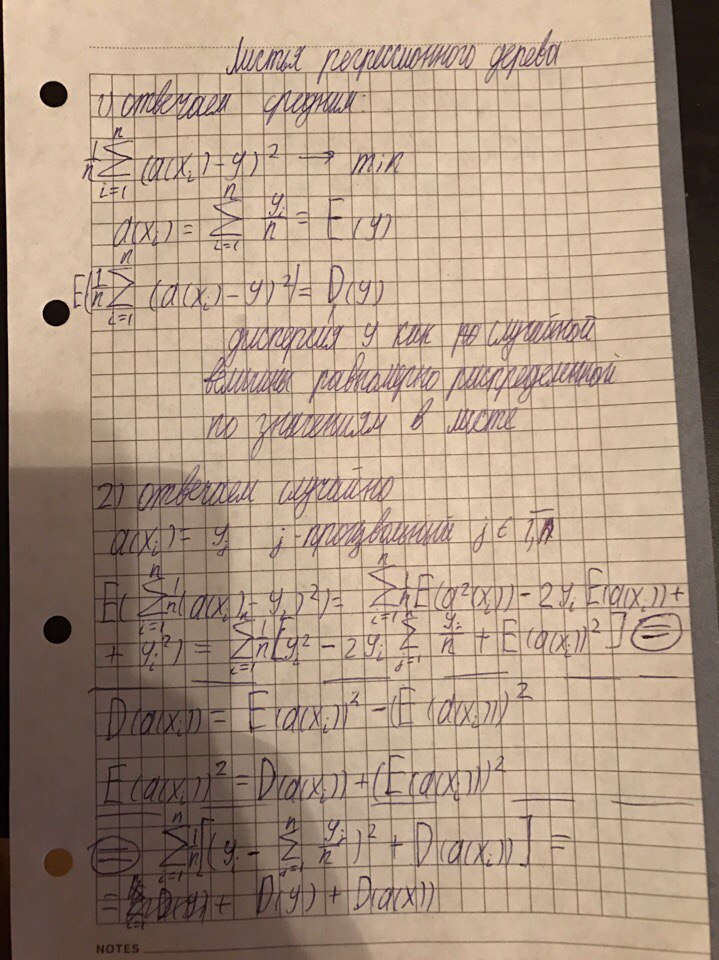 Листья регрессионного дерева
1) отвечаем средним:
1/n ∑_{i=1}^{n} (a(x_i) - y)² → min
a(x_i) = ∑_{i=1}^{n} y_i/n = E(y)
E(1/n ∑_{i=1}^{n} (a(x_i) - y)²) = D(y)
дисперсия y как случайной
величины равномерно распределенной
по значениям в листе
2) отвечаем случайно
a(x_i) = y_j j - произвольный j ∈ 1,n
E(∑_{i=1}^{n} 1/n (a(x_i) - y_i)²) = ∑_{i=1}^{n} 1/n E(a²(x_i)) - 2y_i E(a(x_i)) +
+ y_i²) = ∑_{i=1}^{n} 1/n [y_i² - 2y_i ∑_{j=1}^{n} y_j/n + E(a(x_i))²] =
D(a(x_i)) = E(a(x_i))² - (E(a(x_i)))²
E(a(x_i))² = D(a(x_i)) + (E(a(x_i)))²
= ∑_{i=1}^{n} 1/n [(y_i - ∑_{j=1}^{n} y_j/n)² + D(a(x_i))] =
= D(y) + D(a(x))
NOTES